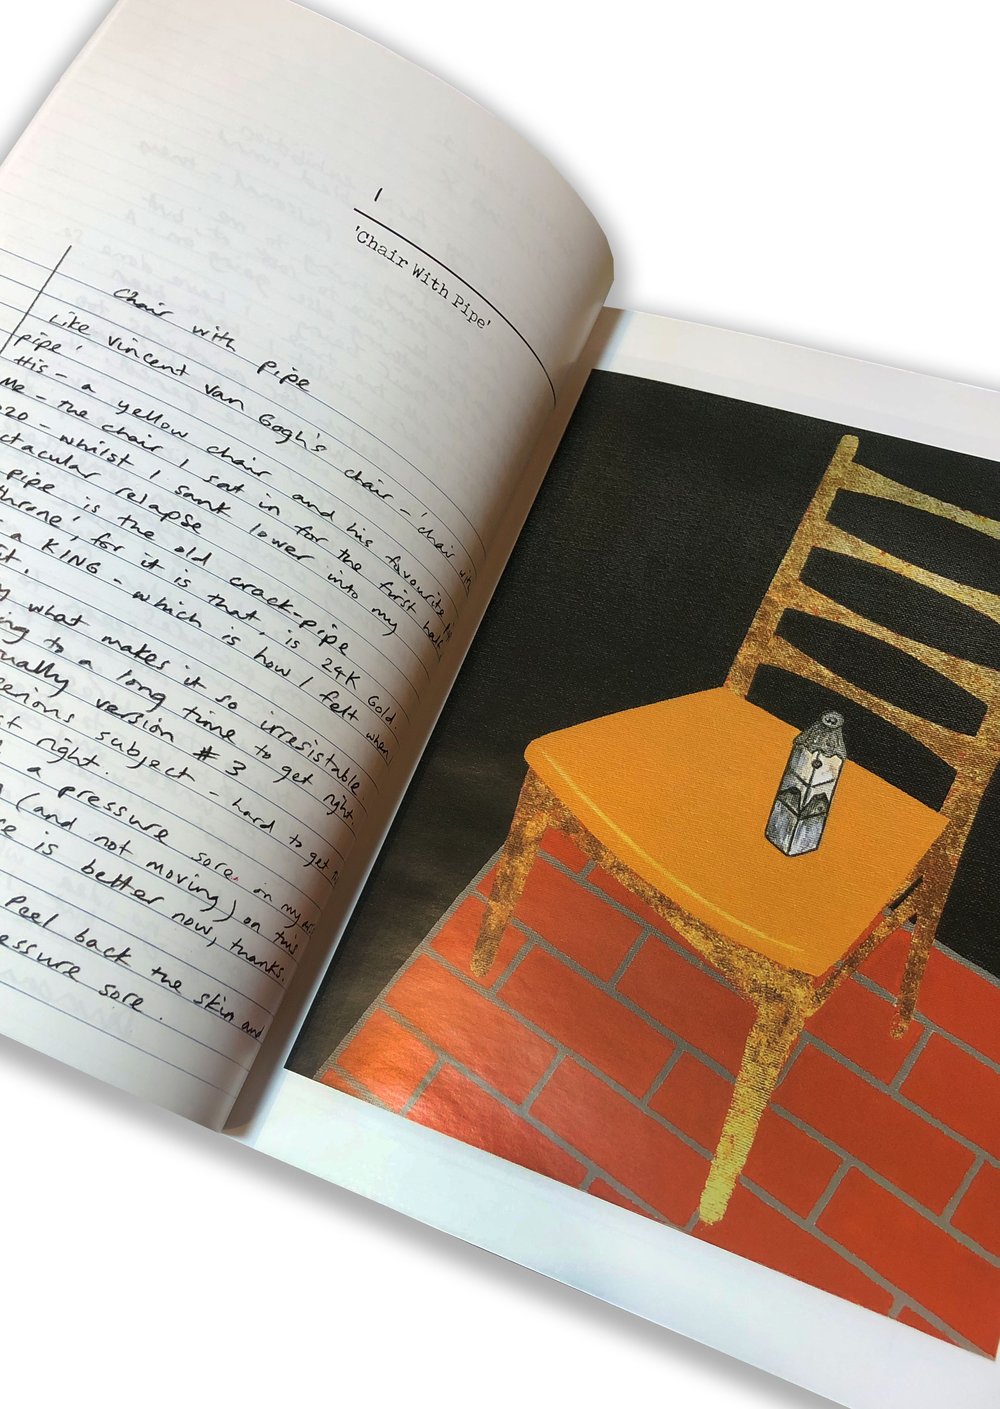 1
'Chair With Pipe'
Chair with pipe
Like Vincent van Gogh's chair - 'chair with
pipe'
this - a yellow chair and his favourite
Me - the chair I sat in for the first half
020 - whilst I sank lower into my
ctacular relapse
pipe is the old crack-pipe
throne', for it is that, is 24K Gold.
a KING - which is how I felt when
st.
y what makes it so irresistable
ing to a long time to get right.
tually version #3
serious subject - hard to get
st right.
a pressure sore on my
(and not moving) on this
re is better now, thanks.
Peel back the skin and
essure sore.